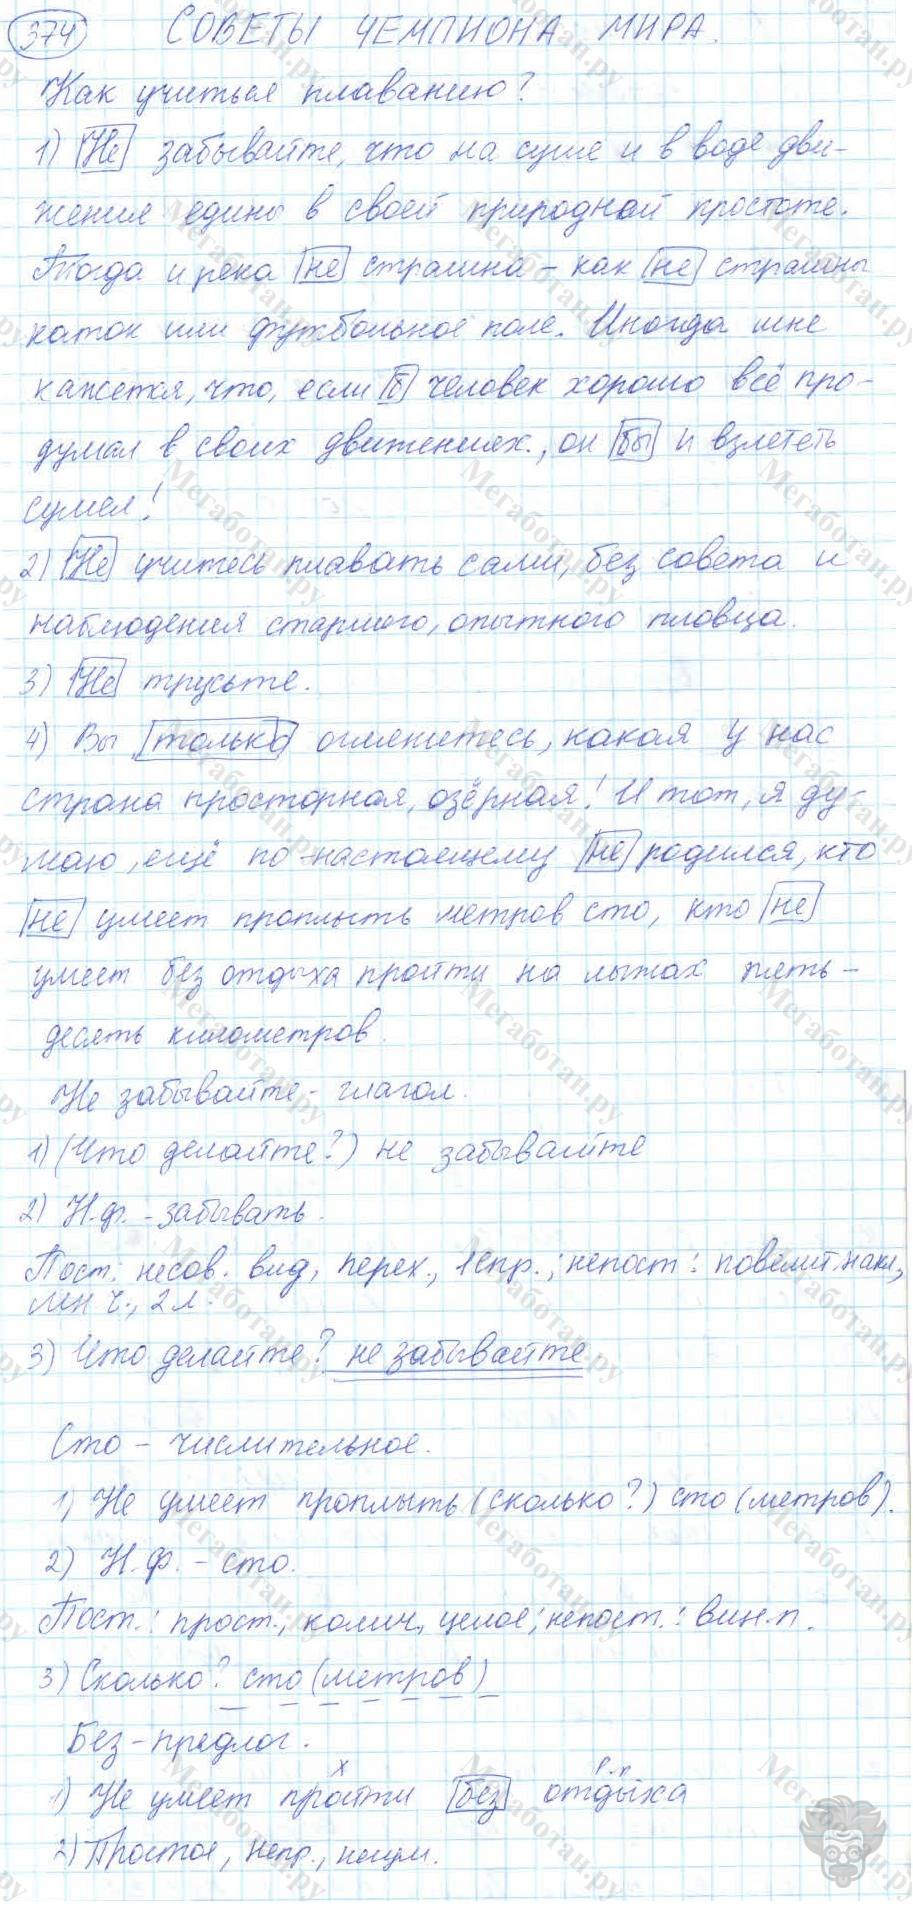 374 СОВЕТЫ ЧЕМПИОНА МИРА.
Как учиться плаванию?
1) Не забывайте, что на суше и в воде дви-
жения едины в своей природной простоте.
Тогда и река не страшна – как не страшны
каток или футбольное поле. Иногда мне
кажется, что, если б человек хорошо всё про-
думал в своих движениях., он бы и взлететь
сумел!
2) Не учитесь плавать сами, без совета и
наблюдения старшего, опытного пловца.
3) Не трусьте.
4) Вы только оглянитесь, какая у нас
страна просторная, озёрная! И тот, я ду-
маю, ещё по-настоящему не родился, кто
не умеет проплыть метров сто, кто не
умеет без отдыха пройти на лыжах пять-
десять километров.
Не забывайте - глагол.
1) (Что делайте?) не забывайте
2) Н.ф. - забывать.
Пост.: несов. вид, перех., 1 спр.; непост: повелит. накл.,
мн ч., 2 л.
3) Что делайте? не забывайте
Сто – числительное.
1) Не умеет проплыть (сколько?) сто (метров).
2) Н.ф. - сто.
Пост.: прост., колич., целое; непост.: вин.п.
3) Сколько? сто (метров)
Без - предлог.
х Р.п
1) Не умеет пройти без отдыха
2) Простое, непр., неизм.
Мегаботан.ру